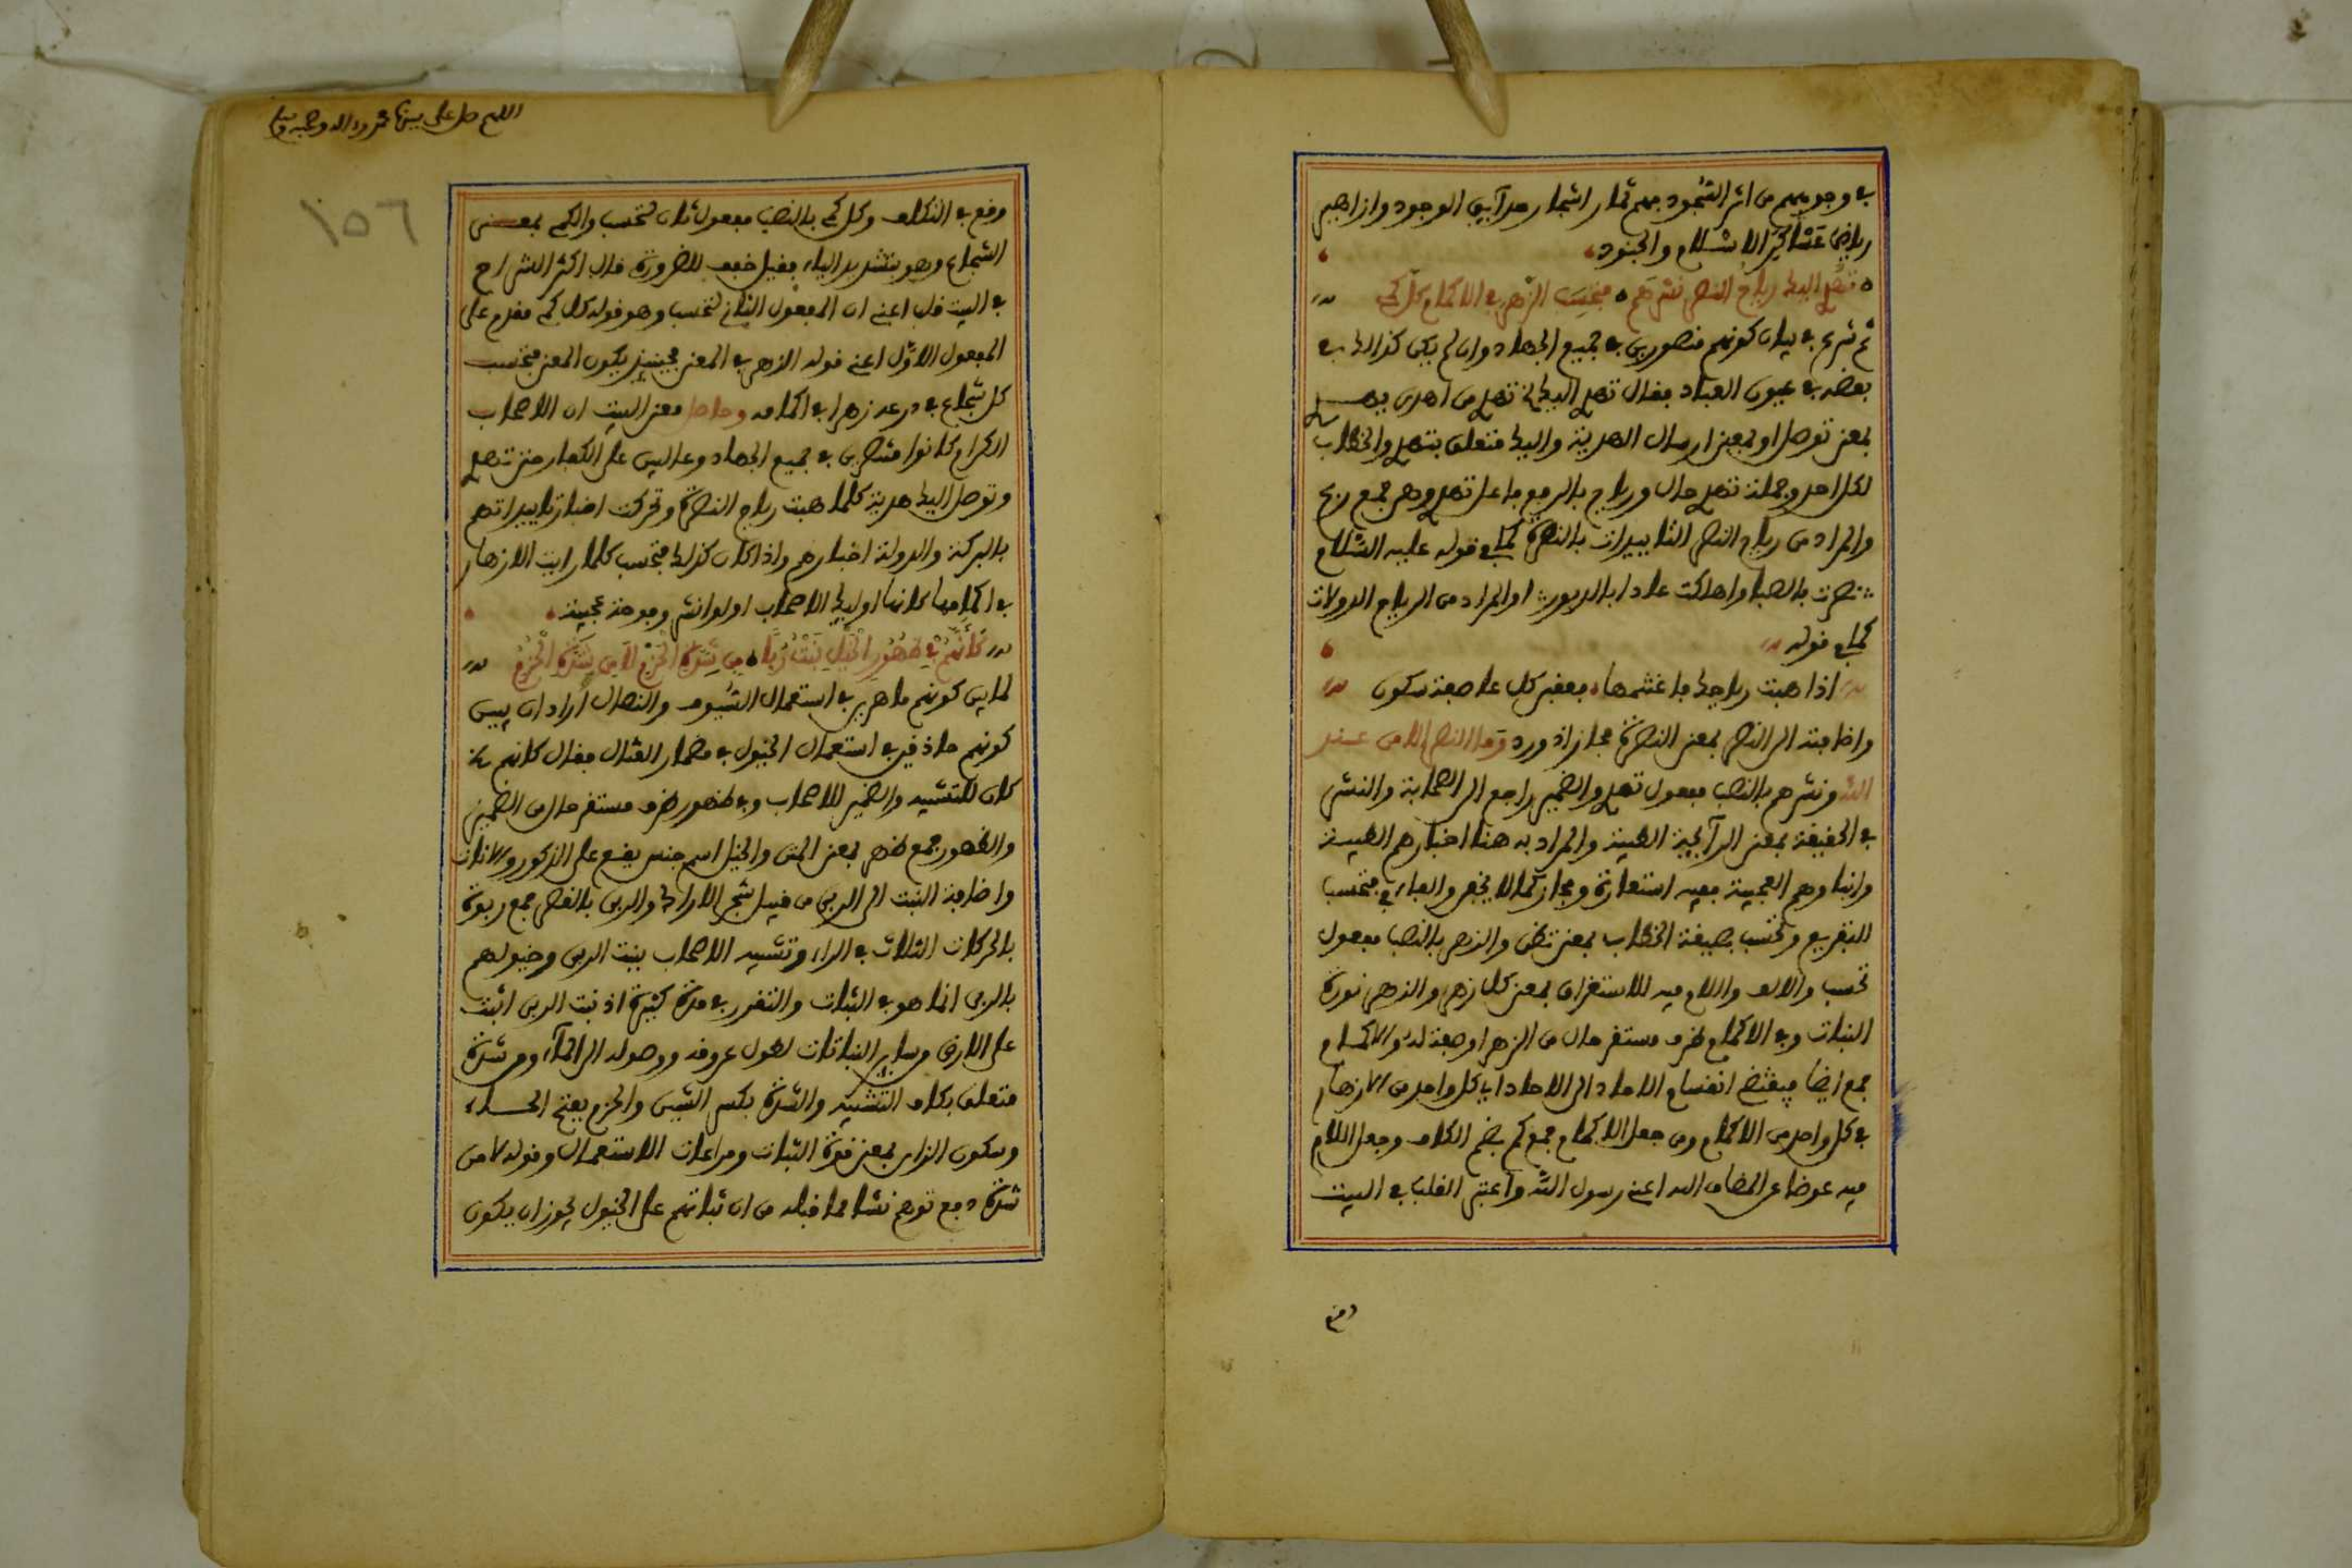 في وجوههم من اثر السجود فهم ثمار اشجار حدآيق الوجود وازاهير
رياض عساكر الاسلام والجنود
تهدي اليك رياح النصر نشرهم فتحسب الزهر في الاكمام كل كمي
ثم شرع في بيان كونهم منصورين في جميع الجهاد وان لم يكن كذالك في
بعضه في عيون العباد فقال تهدي اليك اي تهدي من اهدى يهدي
بمعنى توصل او بمعنى ارسال الهدية واليك متعلق بتهدي والخطاب
لكل احد وجملة تهدي حال ورياح بالرفع فاعل تهدي وهي جمع ريح
والمراد من رياح النصر التاييدات بالنصرة كما في قوله عليه السلام
نصرت بالصبا واهلكت عاد بالدبور او المراد من الرياح الدولات
كما في قوله
اذا هبت رياحك فاغتنمها فعقبى كل عاصفة سكون
واضافته الى النصر بمعنى النصرة مجاز اذ ورد وما النصر الا من عند
الله ونشرهم بالنصب مفعول تهدي والضمير راجع الى الصحابة والنشر
في الحقيقة بمعنى الرآيحة الطيبة والمراد به هنا اخبارهم الطيبة
وانباوهم العجيبة ففيه استعارة ومجاز كما لا يخفى والفاء في فتحسب
للتفريع وتحسب بصيغة الخطاب بمعنى تظن والزهر بالنصب مفعول
تحسب والالف واللام فيه للاستغراق بمعنى كل زهر والزهر نورة
النبات وفي الاكمام ظرف مستقر حال من الزهر او صفة له والاكمام
جمع ايضا فيقتضي انقسام الاحاد الى الاحاد اي كل واحد من الازهار
في كل واحد من الاكمام ومن جعل الاكمام جمع كم بضم الكاف وجعل اللام
فيه عوضا عن المضاف اليه اعني رسول الله واعتبر القلب في البيت
وقع
اللهم صل على سيدنا محمد واله وصحبه وسلم
١٥٦
وقع في التكلف وكل كمي بالنصب مفعول ثان لتحسب والكمي بمعنى
الشجاع وهو بتشديد الياء فقيل خفف للضرورة قال اكثر الشراح
في البيت قلب اعني ان المفعول الثاني لتحسب وهو قوله كل كمي مقدم على
المفعول الاول اعني قوله الزهر في المعنى فحينيذ يكون المعنى فتحسب
كل شجاع في درعه زهرا في اكمامه وحاصل معنى البيت ان الاصحاب
الكرام كانوا منتصرين في جميع الجهاد وغالبين على الكفار حتى تهدي
وتوصل اليك هدية كلما هبت رياح النصرة وتحركت اخبار تاييداتهم
بالبركة والدولة اخبارهم واذا كان كذلك فتحسب كلما رايت الازهار
في اكمامها كانها اوليك الاصحاب اولوا نشر وفوحة عجيبة
كأنهم في ظهور الخيل نبت ربا من شدة الحزم لا من شدة الحزم
لما بين كونهم ماهرين في استعمال السيوف والنصال اراد ان يبين
كونهم حاذقين في استعمال الخيول في مضمار القتال فقال كانهم في
كان للتشبيه والضمير للاصحاب وفي ظهور ظرف مستقر حال من الضمير
والظهور جمع ظهر بمعنى المتن والخيل اسم جنس يقع على الذكور والاناث
واضافة النبت الى الربى من قبيل شجر الاراك والربى بالقصر جمع ربوة
بالحركات الثلاث في الراء وتشبيه الاصحاب بنبت الربى وخيولهم
بالربى انما هو في الثبات والتقرر في مدة كثيرة اذ نبت الربى اثبت
على الارض من ساير النباتات لطول عروقه ووصوله الى المآء ومن شدة
متعلق بكاف التشبيه والشدة بكسر الشين والحزم بفتح الحاء
وسكون الزاي بمعنى قوة الثبات ومراعات الاستعمال وقوله لا من
شدة دفع توهم نشا مما قبله من ان ثباتهم على الخيول يجوز ان يكون